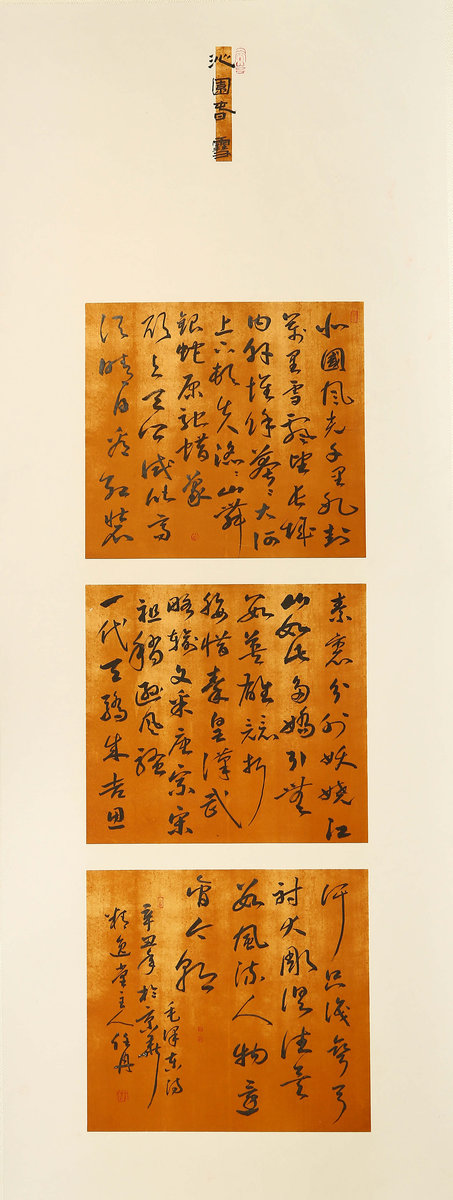 沁園春 雪
北國風光千里冰封
萬里雪飄望長城
内外惟餘莽〻大河
上下頓失滔〻山舞
銀蛇原馳蠟象
欲与天公試比高
須晴日看紅裝
素裹分外妖嬈江
山如此多嬌引無
數英雄競折
腰惜秦皇漢武
略輸文采唐宗宋
祖稍遜風騷
一代天驕成吉思
汗只識彎弓
射大雕俱往矣
數風流人物還
看今朝
毛澤東詞
辛丑年於京華
精逸堂主人任丹